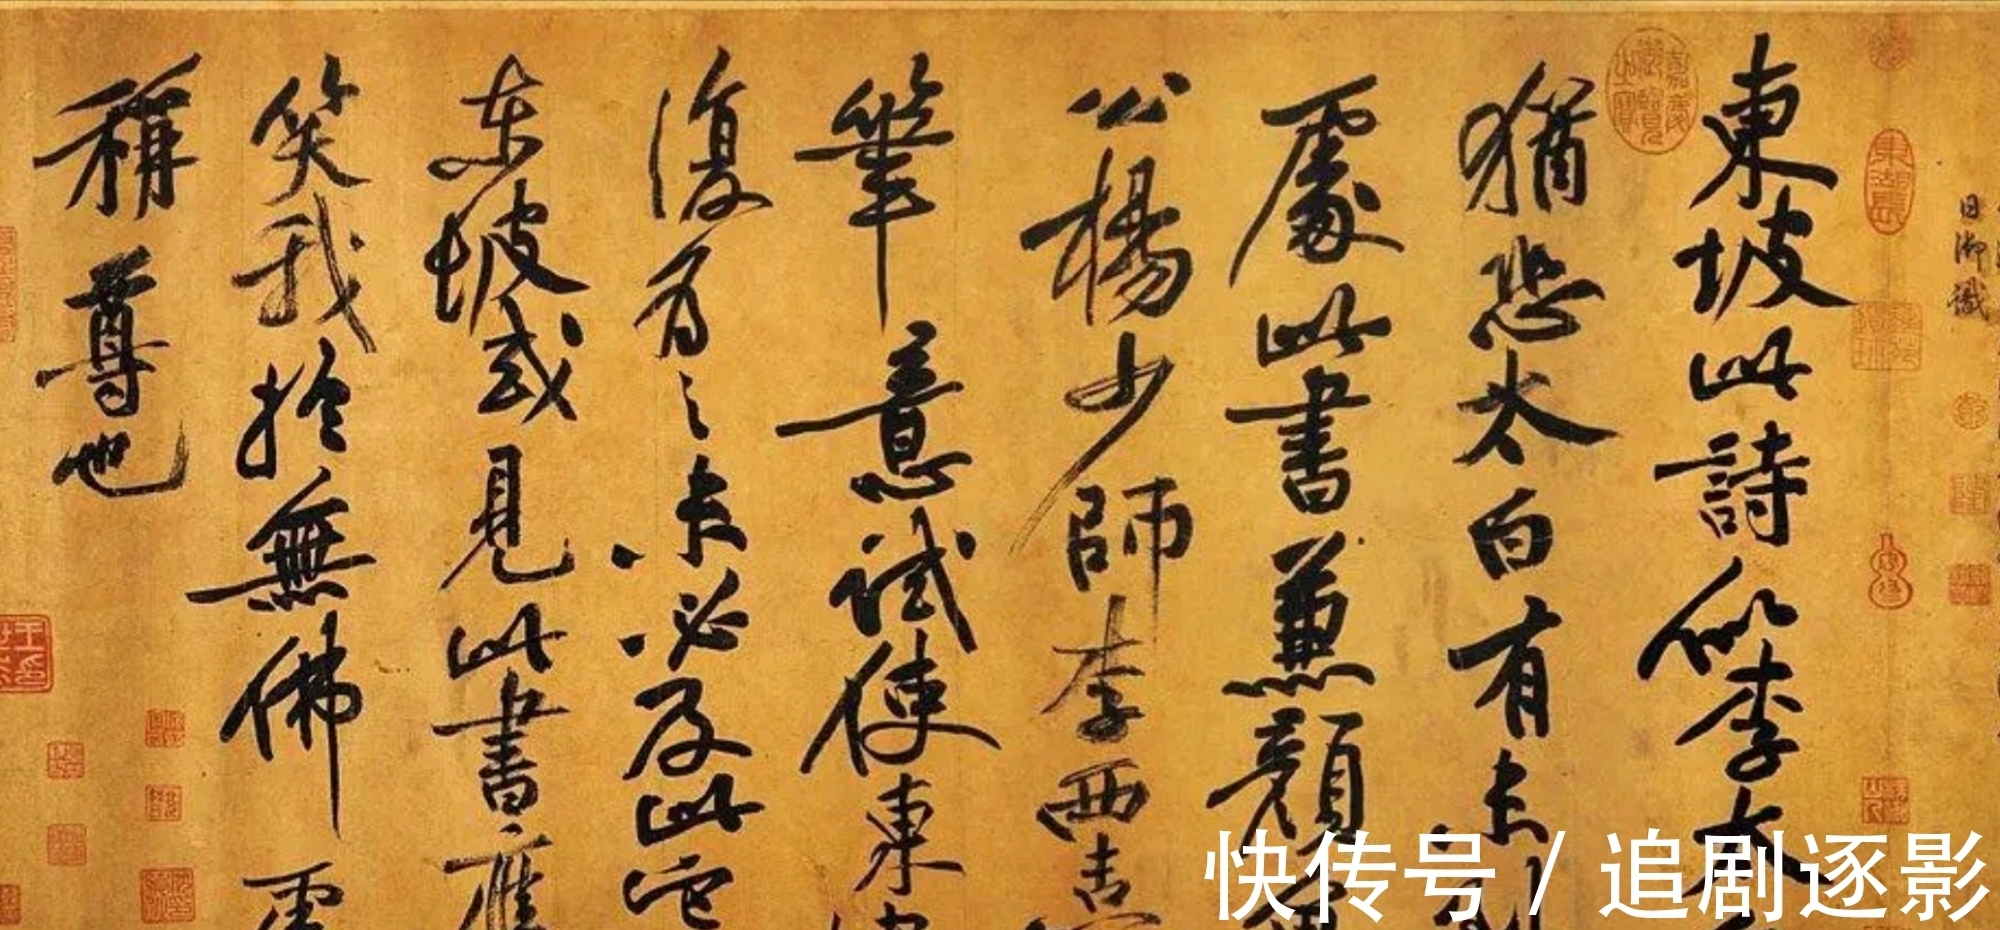 日御識
嘉慶御覽之寶
東坡此詩似李太
猶恐太白有未到
處此書兼顏
公楊少師李西臺
筆意試使東坡
復為之未必及此它
東坡或見此書應
笑我於無佛處
稱尊也
快传号 / 追剧逐影